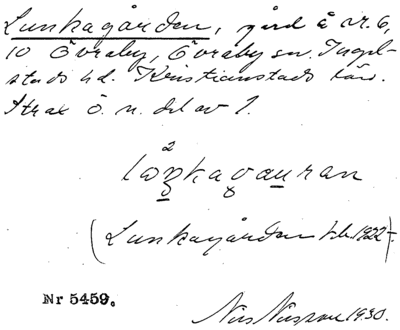 Lunkagården, gård å nr. 6,
10 Övraby, Övraby sn. Ingel-
stads hd. Kristianstads län.
Strax ö. n. del av 1.
2
(Lunkagården tr. 1922-
Nr 5459.
Nils Nilsson 1930.